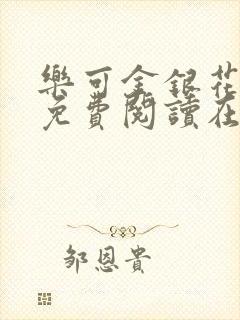 樂可金銀花
免費閱讀在
鄒恩貴